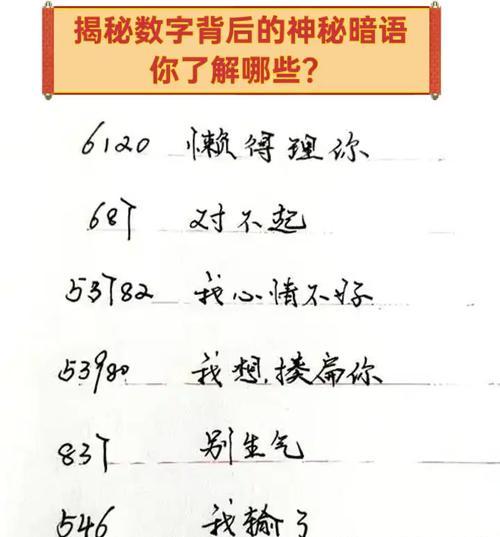 揭秘数字背后的神秘暗语
你了解哪些？
6120 懒得理你
687 对不起
53782 我心情不好
53980 我想揍扁你
837 别生气
546 我输了